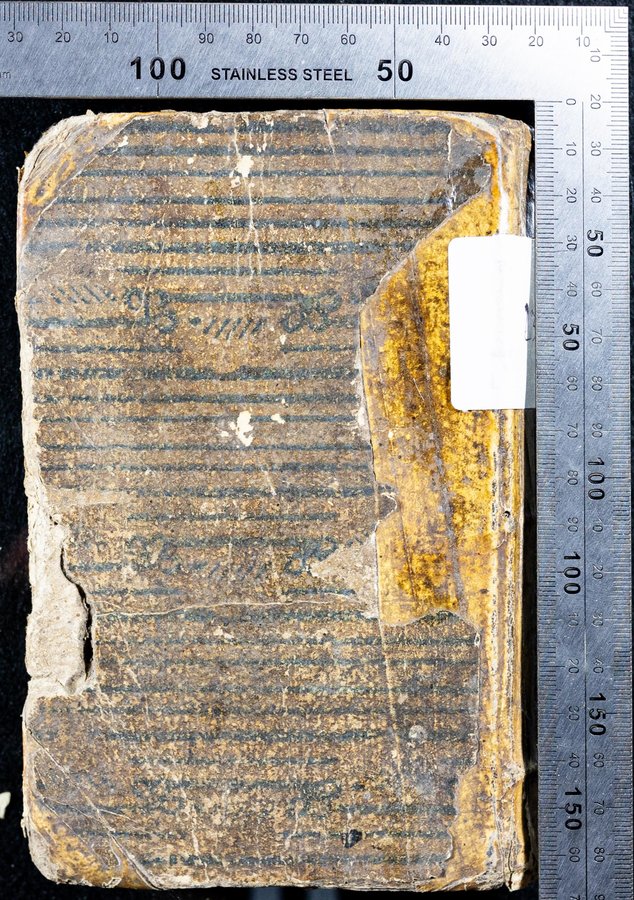 30 20 10 100 90 80 70 60 50 40 30 20 10
mm STAINLESS STEEL
0 10 20 30 40 50 60 70 80 90 100 10 20 30 40 150 60
10 20 30 40 50 60 70 80 90 100 10 20 30 40 150 60 70 80